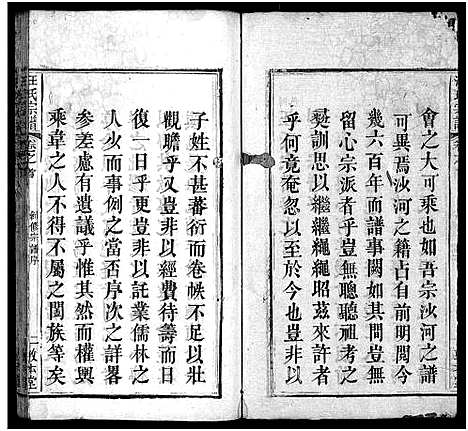 會之大可乘也如吾宗沙河之譜
可異焉沙河之籍占自有前明閱今
幾六百年而譜事闕如其間豈無
留心宗派者乎豈無聰聽祖考之
彝訓思以繼繼繩繩昭茲來許者
乎何竟奄忽以至於今也豈非以
子姓不甚蕃衍而卷帙不足以壯
觀瞻乎又豈非以經費待籌而日
復一日乎更豈非以託業儒林之
人少而事例之當否序次之詳畧
參差慮有遺議乎惟其然而權輿
乘韋之人不得不屬之閩族等矣
汪氏宗譜
卷之首
創修宗譜序
一